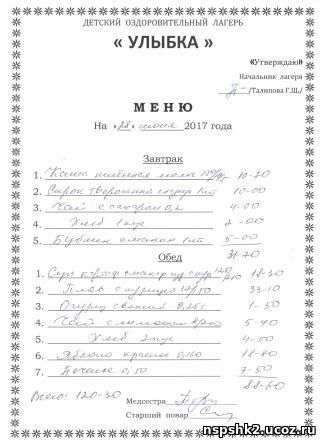 ДЕТСКИЙ ОЗДОРОВИТЕЛЬНЫЙ ЛАГЕРЬ
« УЛЫБКА »
«Утверждаю»
Начальник лагеря
/Талипова Г.Ш./
МЕНЮ
На «28» июня 2017 года
Завтрак
1. Каша пшённая молоч 10-70
2. Сырок творожный 1шт 10-00
3. Чай с сахаром 4-00
4. Хлеб 1 кус 2-00
5. Бублик с маком 1шт 5-00
31-70
Обед
1. Суп картоф с макар 18-30
2. Плов с курицей 33-10
3. Огурец свежий 0,25г 1-50
4. Чай с лимоном 5-40
5. Хлеб 2кус 4-00
6. Яблоко красное 0,160 18-80
7. Печенье 0,50 7-50
88-60
Всего: 120-30
Медсестра
Старший повар
nspshk2.ucoz.ru